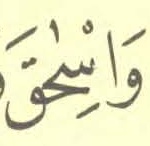 وَاسْحٰقَ